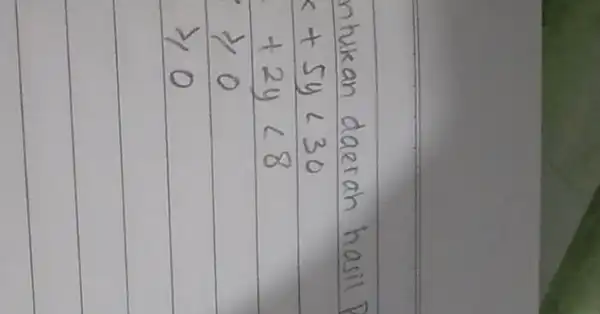 ntukan daerah hasil P
x + 5y < 30
+ 2y < 8
≥ 0
≥ 0